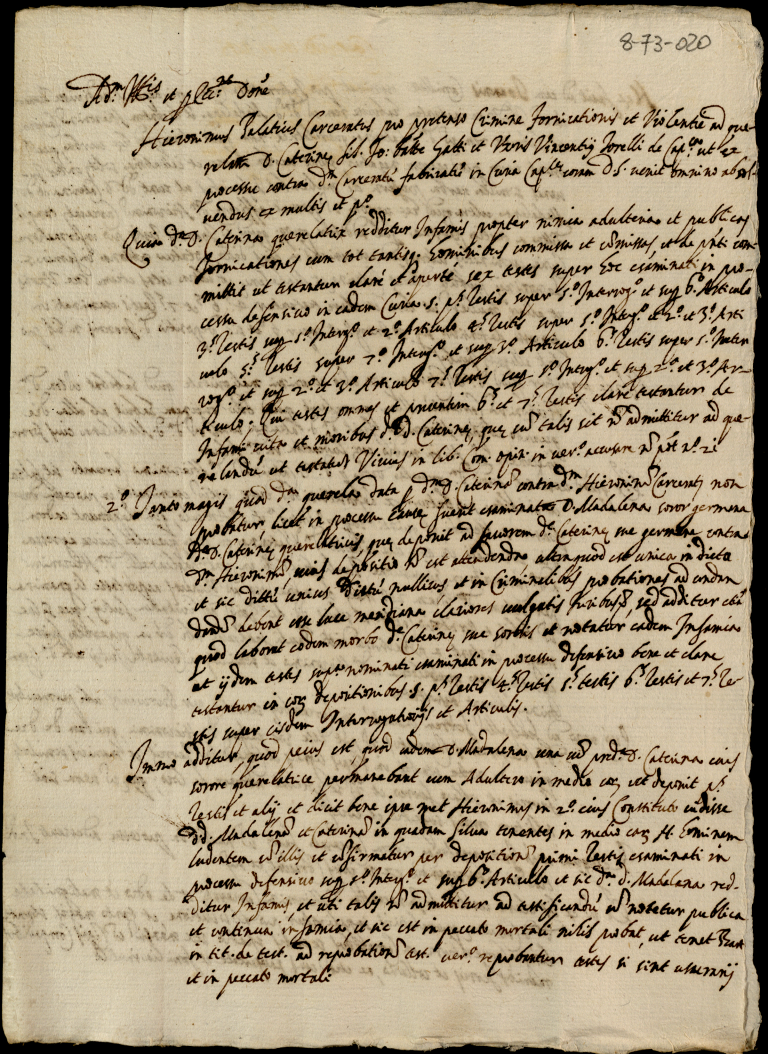 8-73-020
Adm Illis et
Hieronimus Paletius Carceratus pro pretenso Crimine fornicationis et Violentie ad que-
relam D. Caterine fil. Jo: Batte Gatti et Uxoris Vincentij Torelli de ut ex
processu contra dm Carceratū fabricato in Curia coram D.S. venit omnino absol-
vendus ex multis et pº
Quia dª D. Caterina querelatrix redditur Infamis propter nimia adulteria et publicas
fornicationes cum tot tantisq. hominibus commissa et cōmissas, et de pñti com-
mittit ut testantur claré et aperté sex testes super hoc examinati in pro-
cessu defensivo in eadem Curia s. pº Testis super 5º Interrogº et sup 6º Articulo
3º Testis sup 5º Interrgº et 2º Articulo 4º Testis super 5º Interrgº et 2º et 3º Arti
culo 5º Testis super 7º Interrgº et sup 3º Articulo 6º Testis super 5º Inter
rogº et sup 2º et 3º Articulo 7º Testis sup 5º Interrgº et sup 2º et 3º Ar-
ticulo; Qui testes omnes et presertim 6º et 7º Testis claré testantur de
Infami vita et moribus d. D. Caterine, que cū talis sit nō admittitur ad que-
relandū ut testatur Vivius in lib. Com. opin. in verº accusare nō pōt nº 2i
2º Tanto magis quod dª querela data p dm D. Caterinā contra dm Hieronimū Carceratū non
probatur licet in processu cause fuerit examinata D. Madalena soror germana
dª D. Caterine querelatricis, que deponit ad favorem dª Caterine sue germane contra
dm Hieronimū, cuius depositio nō est attendenda attenquod est unica in dicto
et sic dictū unius dictū nullius et in Criminalibus probationes ad conden-
dandū debent esse luce meridiana clariores vulgatis Juribus, sed additur etiā
quod laborat eodem morbo dª Caterine sue sororis et notatur eadem Infamia
ut ijdem testes supª nominati examinati in processu defensivo bene et clare
testantur in eoȝ depositionibus s. pº Testis 4º Testis 5º testis 6º Testis et 7º Te-
stis super eisdem Interrogatorijs et Articulis.
Immo additur, quod peius est, quod eadem D. Madalena una cū predª D. Caterina eius
sorore querelatrice permanebant cum Adultero in medio eoȝ ut deponit pº
Testis et alij et dicit bene ipse met Hieronimus in 2º eius Constituto vidisse
DD. Madalenā et Caterinā in quadam Silva tenentes in medio eoȝ H. hominem
ludentem cū illis et cōfirmatur per depositionē primi Testis examinati in
processu defensivo sup 5º Interrgº et sup 6º Articulo et sic dª d. Madalena red-
ditur Infamis, et uti talis nō admittitur ad testificandū cū notetur publica
et continua infamia, et sic est in peccato mortali nihil probat, ut tenet
in tit. de test. ad reprobationē test. verº reprobantur testes si sint usurarij
et in peccato mortali